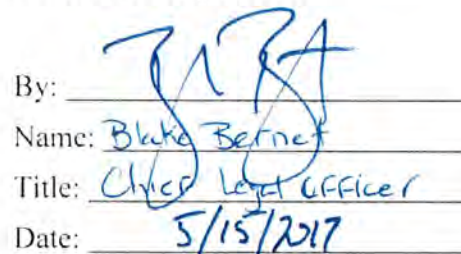 By:
Name: Blake Bernet
Title: Chief Legal Officer
Date: 5/15/2017